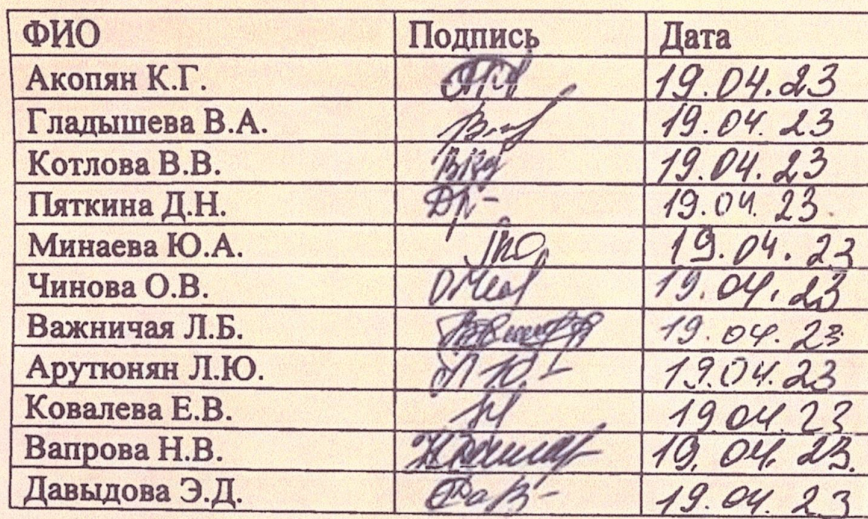 ФИО Подпись Дата
Акопян К.Г. 19.04.23
Гладышева В.А. 19.04.23
Котлова В.В. 19.04.23
Пяткина Д.Н. 19.04.23.
Минаева Ю.А. 19.04.23
Чинова О.В. 19.04.23
Важничая Л.Б. 19.04.23
Арутюнян Л.Ю. 19.04.23
Ковалева Е.В. 19 04. 23
Вапрова Н.В. 19.04.23.
Давыдова Э.Д. 19.04.23